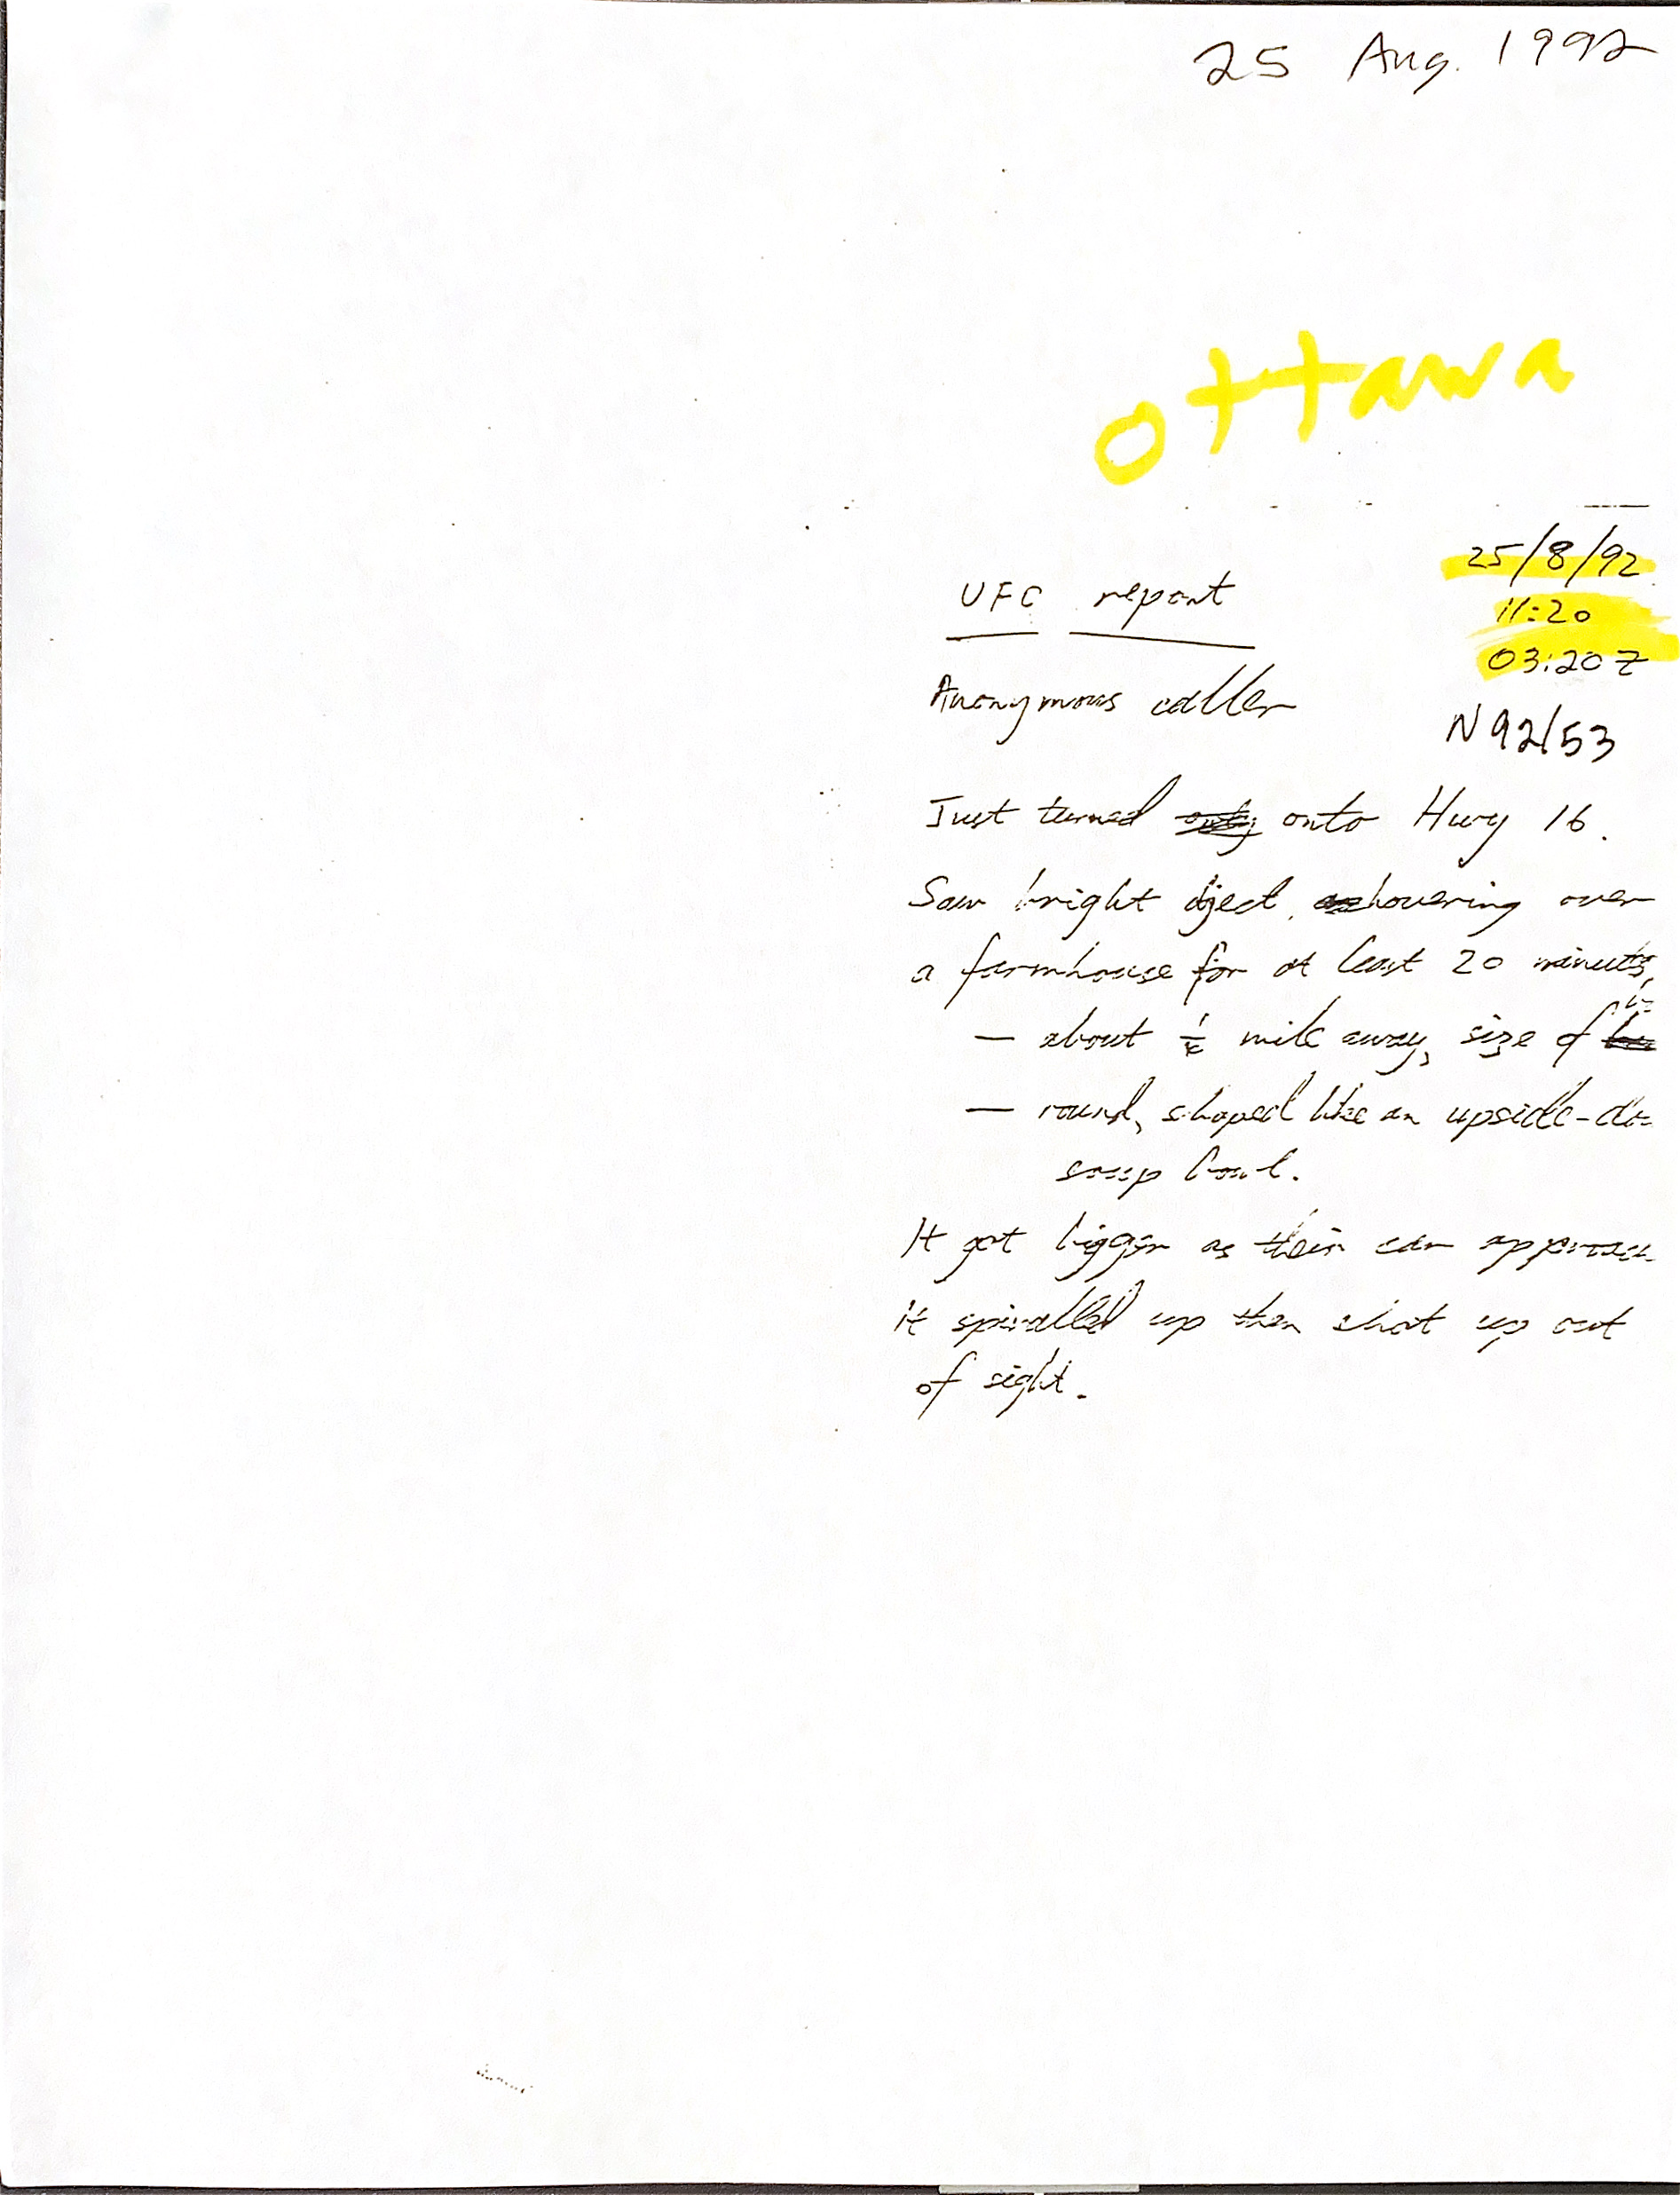 25 Aug. 1992
Ottawa
25/8/92
UFO report
11:20
03:20 Z
Anonymous caller
N92/53
Just turned onto Hwy 16.
Saw bright object, hovering over
a farmhouse for at least 20 minutes,
— about mile away, size of
— round, shaped like an upside-do
soup bowl.
It got bigger as their car approac
it spiralled up then shot up out
of sight.